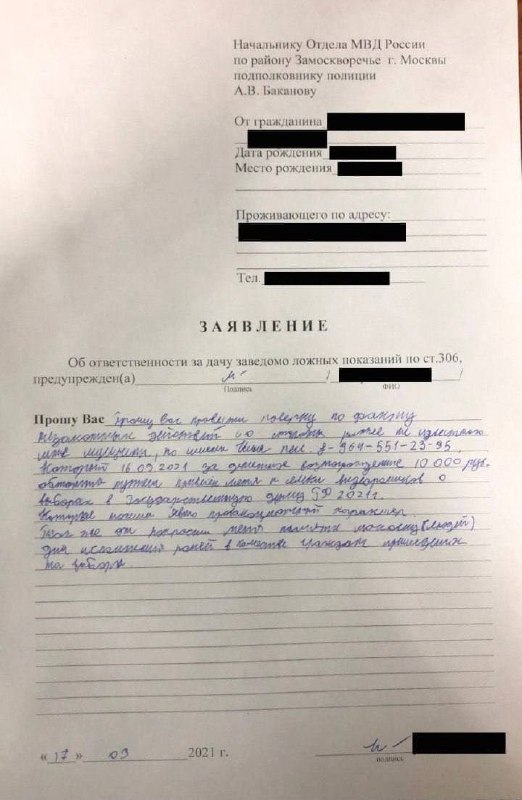 Начальнику Отдела МВД России
по району Замоскворечье г. Москвы
подполковнику полиции
А.В. Баканову
От гражданина
Дата рождения
Место рождения
Проживающего по адресу:
Тел.
ЗАЯВЛЕНИЕ
Об ответственности за дачу заведомо ложных показаний по ст.306,
предупрежден(а) / /
Подпись ФИО
Прошу Вас Прошу вас провести поверку по факту
незаконных действий со стороны ранее не известного
мне мужчины, по имени Илья тел 8-964-551-23-95.
Который 16.09.2021 за денежное вознаграждение 10 000 руб.
обманным путем меня к съемки видеороликов о
выборах в Государственную думу РФ 2021г.
Которые носили явно провокационный характер.
Так же он попросил меня (людей)
для ролей в качестве граждан пришедших
на выборы
«17» 09 2021 г.
подпись